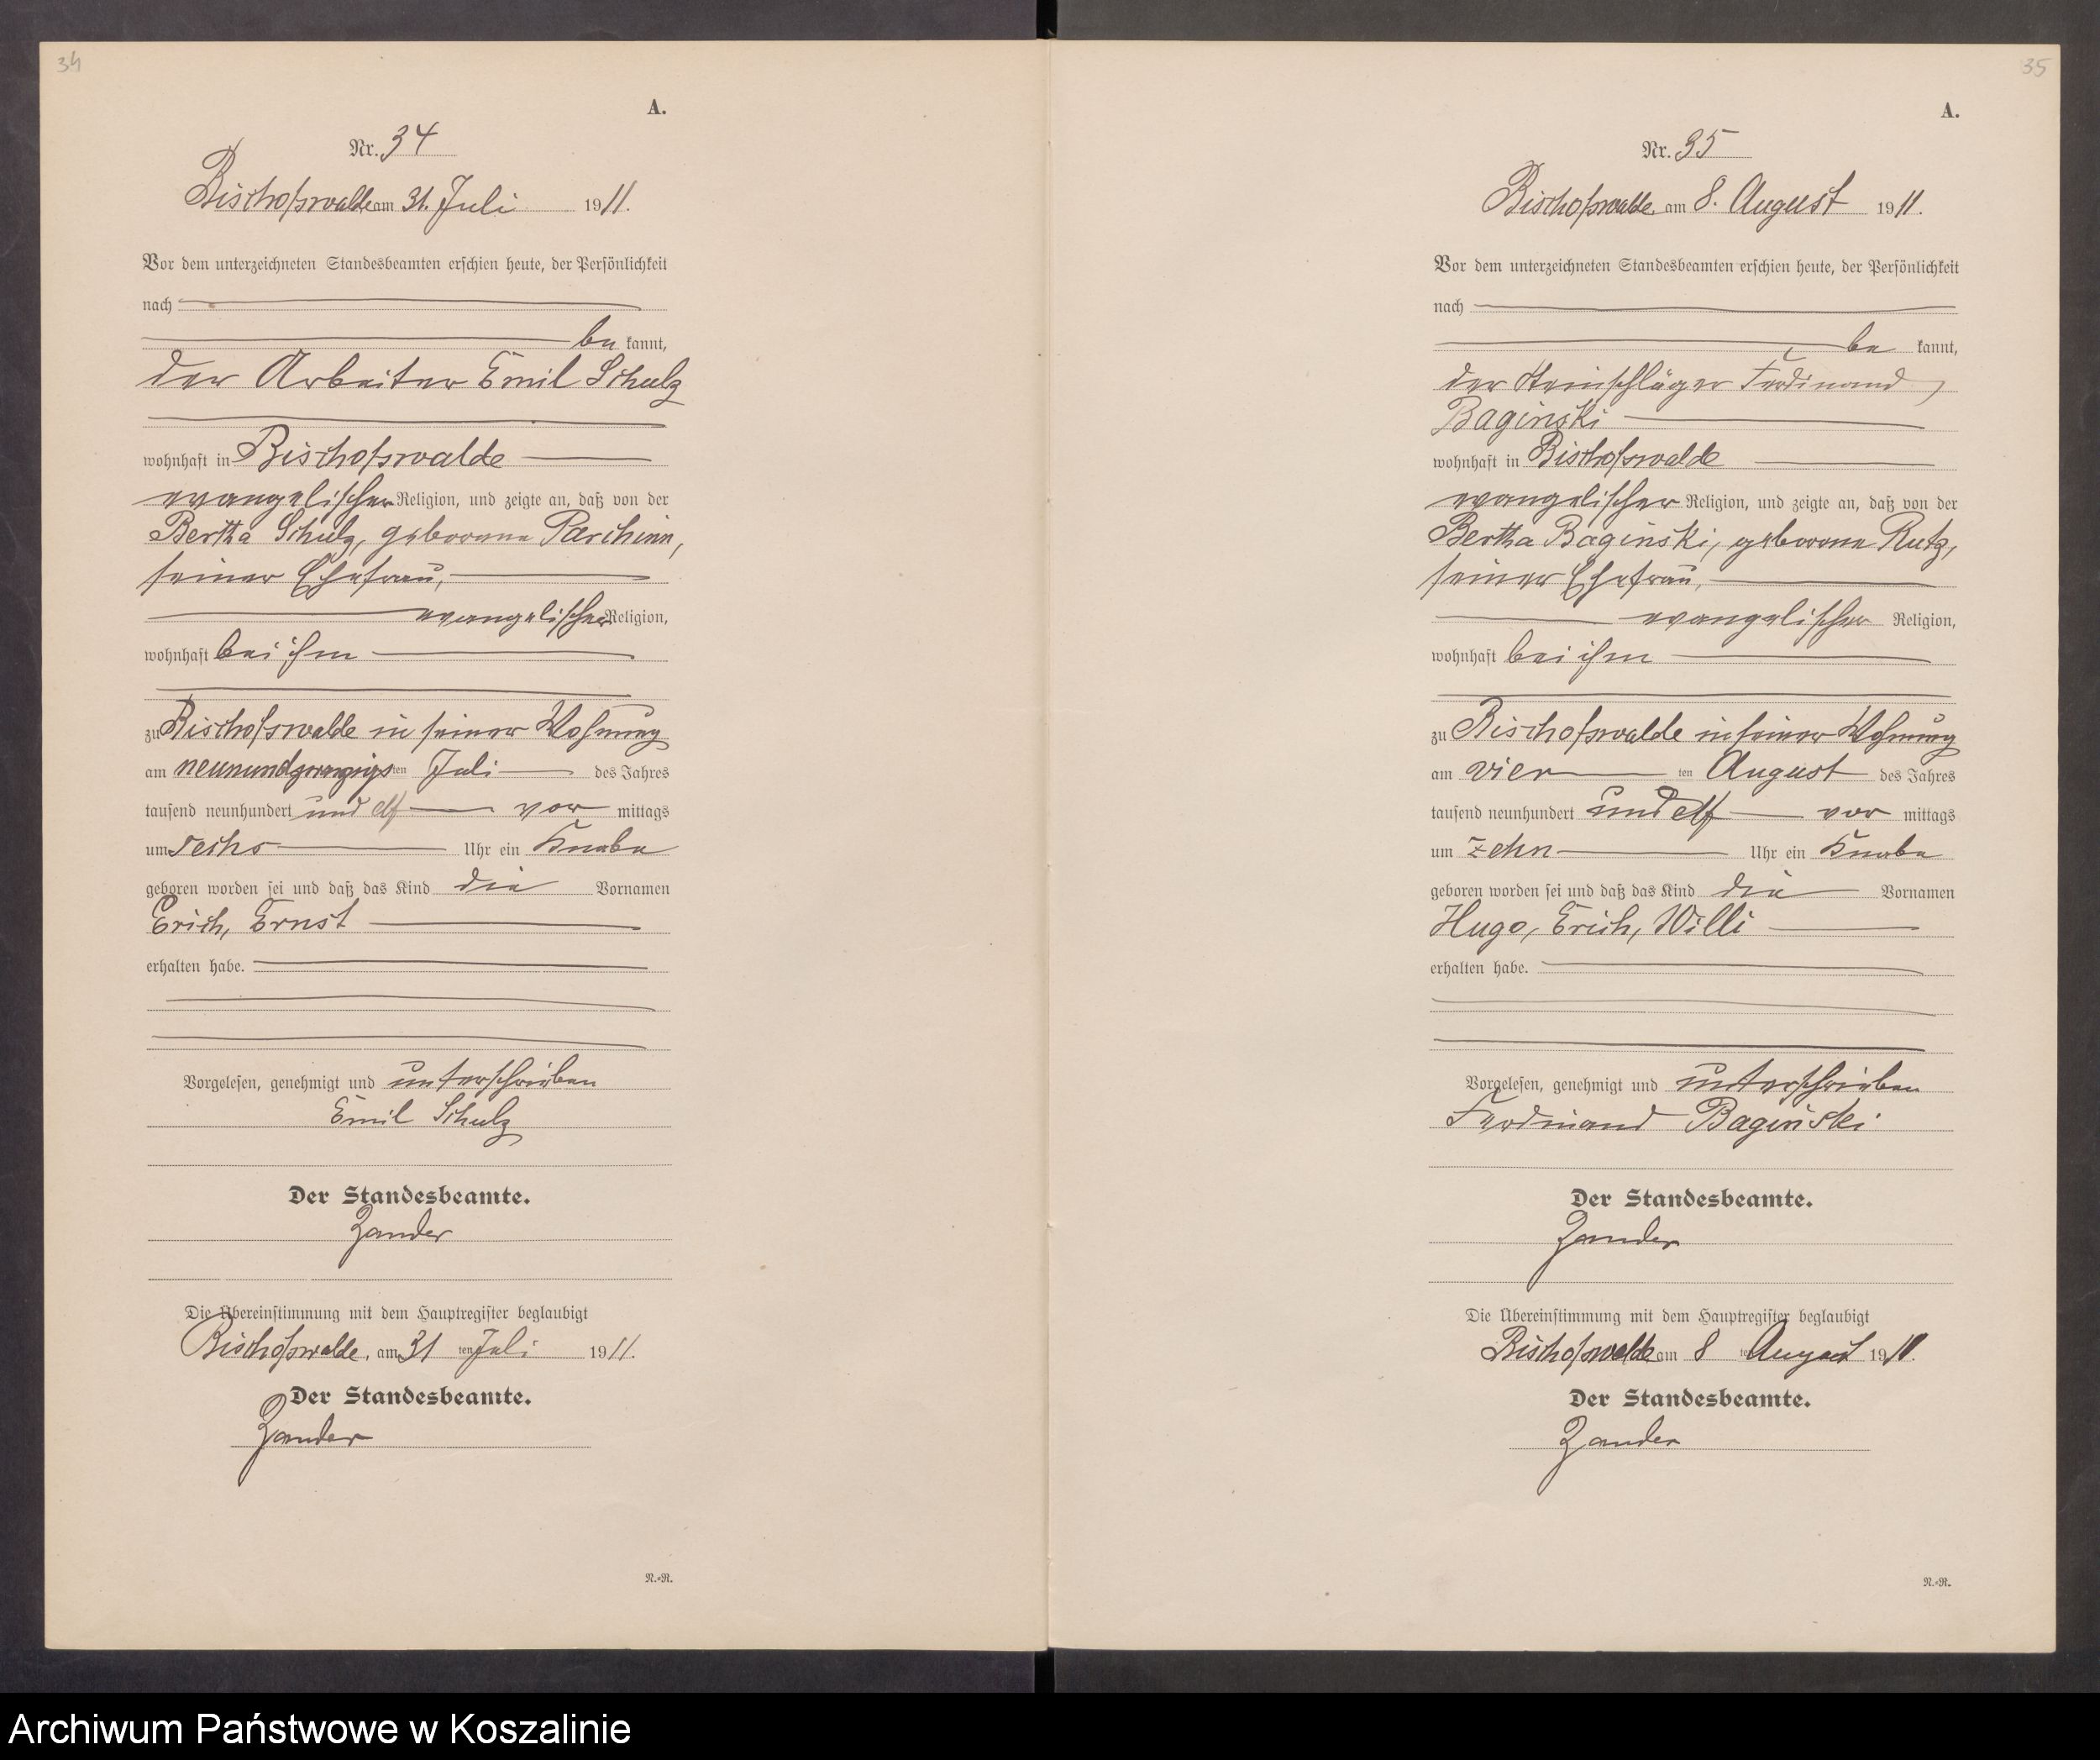 34
A.
Nr. 34
Bischofswalde am 31. Juli 1911.
Vor dem unterzeichneten Standesbeamten erschien heute, der Persönlichkeit
nach
be kannt,
der Arbeiter Emil Schulz
wohnhaft in Bischofswalde
evangelischer Religion, und zeigte an, daß von der
Bertha Schulz, geborene
seiner Ehefrau,
evangelischer Religion,
wohnhaft bei ihm
zu Bischofswalde in seiner Wohnung
am neunundzwanzigsten Juli des Jahres
tausend neunhundert und elf vor mittags
um sechs Uhr ein Knabe
geboren worden sei und daß das Kind die Vornamen
Erich, Ernst
erhalten habe.
Vorgelesen, genehmigt und unterschrieben
Emil Schulz
Der Standesbeamte.
Zander
Die Übereinstimmung mit dem Hauptregister beglaubigt
Bischofswalde, am 31 ten Juli 1911.
Der Standesbeamte.
Zander
N.=R.
35
A.
Nr. 35
Bischofswalde am 8. August 1911.
Vor dem unterzeichneten Standesbeamten erschien heute, der Persönlichkeit
nach
be kannt,
der Steinschläger Ferdinand
Baginski
wohnhaft in Bischofswalde
evangelischer Religion, und zeigte an, daß von der
Bertha Baginski, geborene Rutz,
seiner Ehefrau,
evangelischer Religion,
wohnhaft bei ihm
zu Bischofswalde in seiner Wohnung
am vier ten August des Jahres
tausend neunhundert und elf vor mittags
um zehn Uhr ein Knabe
geboren worden sei und daß das Kind die Vornamen
Hugo, Erich, Willi
erhalten habe.
Vorgelesen, genehmigt und unterschrieben
Ferdinand Baginski
Der Standesbeamte.
Zander
Die Übereinstimmung mit dem Hauptregister beglaubigt
Bischofswalde am 8 ten August 1911.
Der Standesbeamte.
Zander
N.=R.
Archiwum Państwowe w Koszalinie